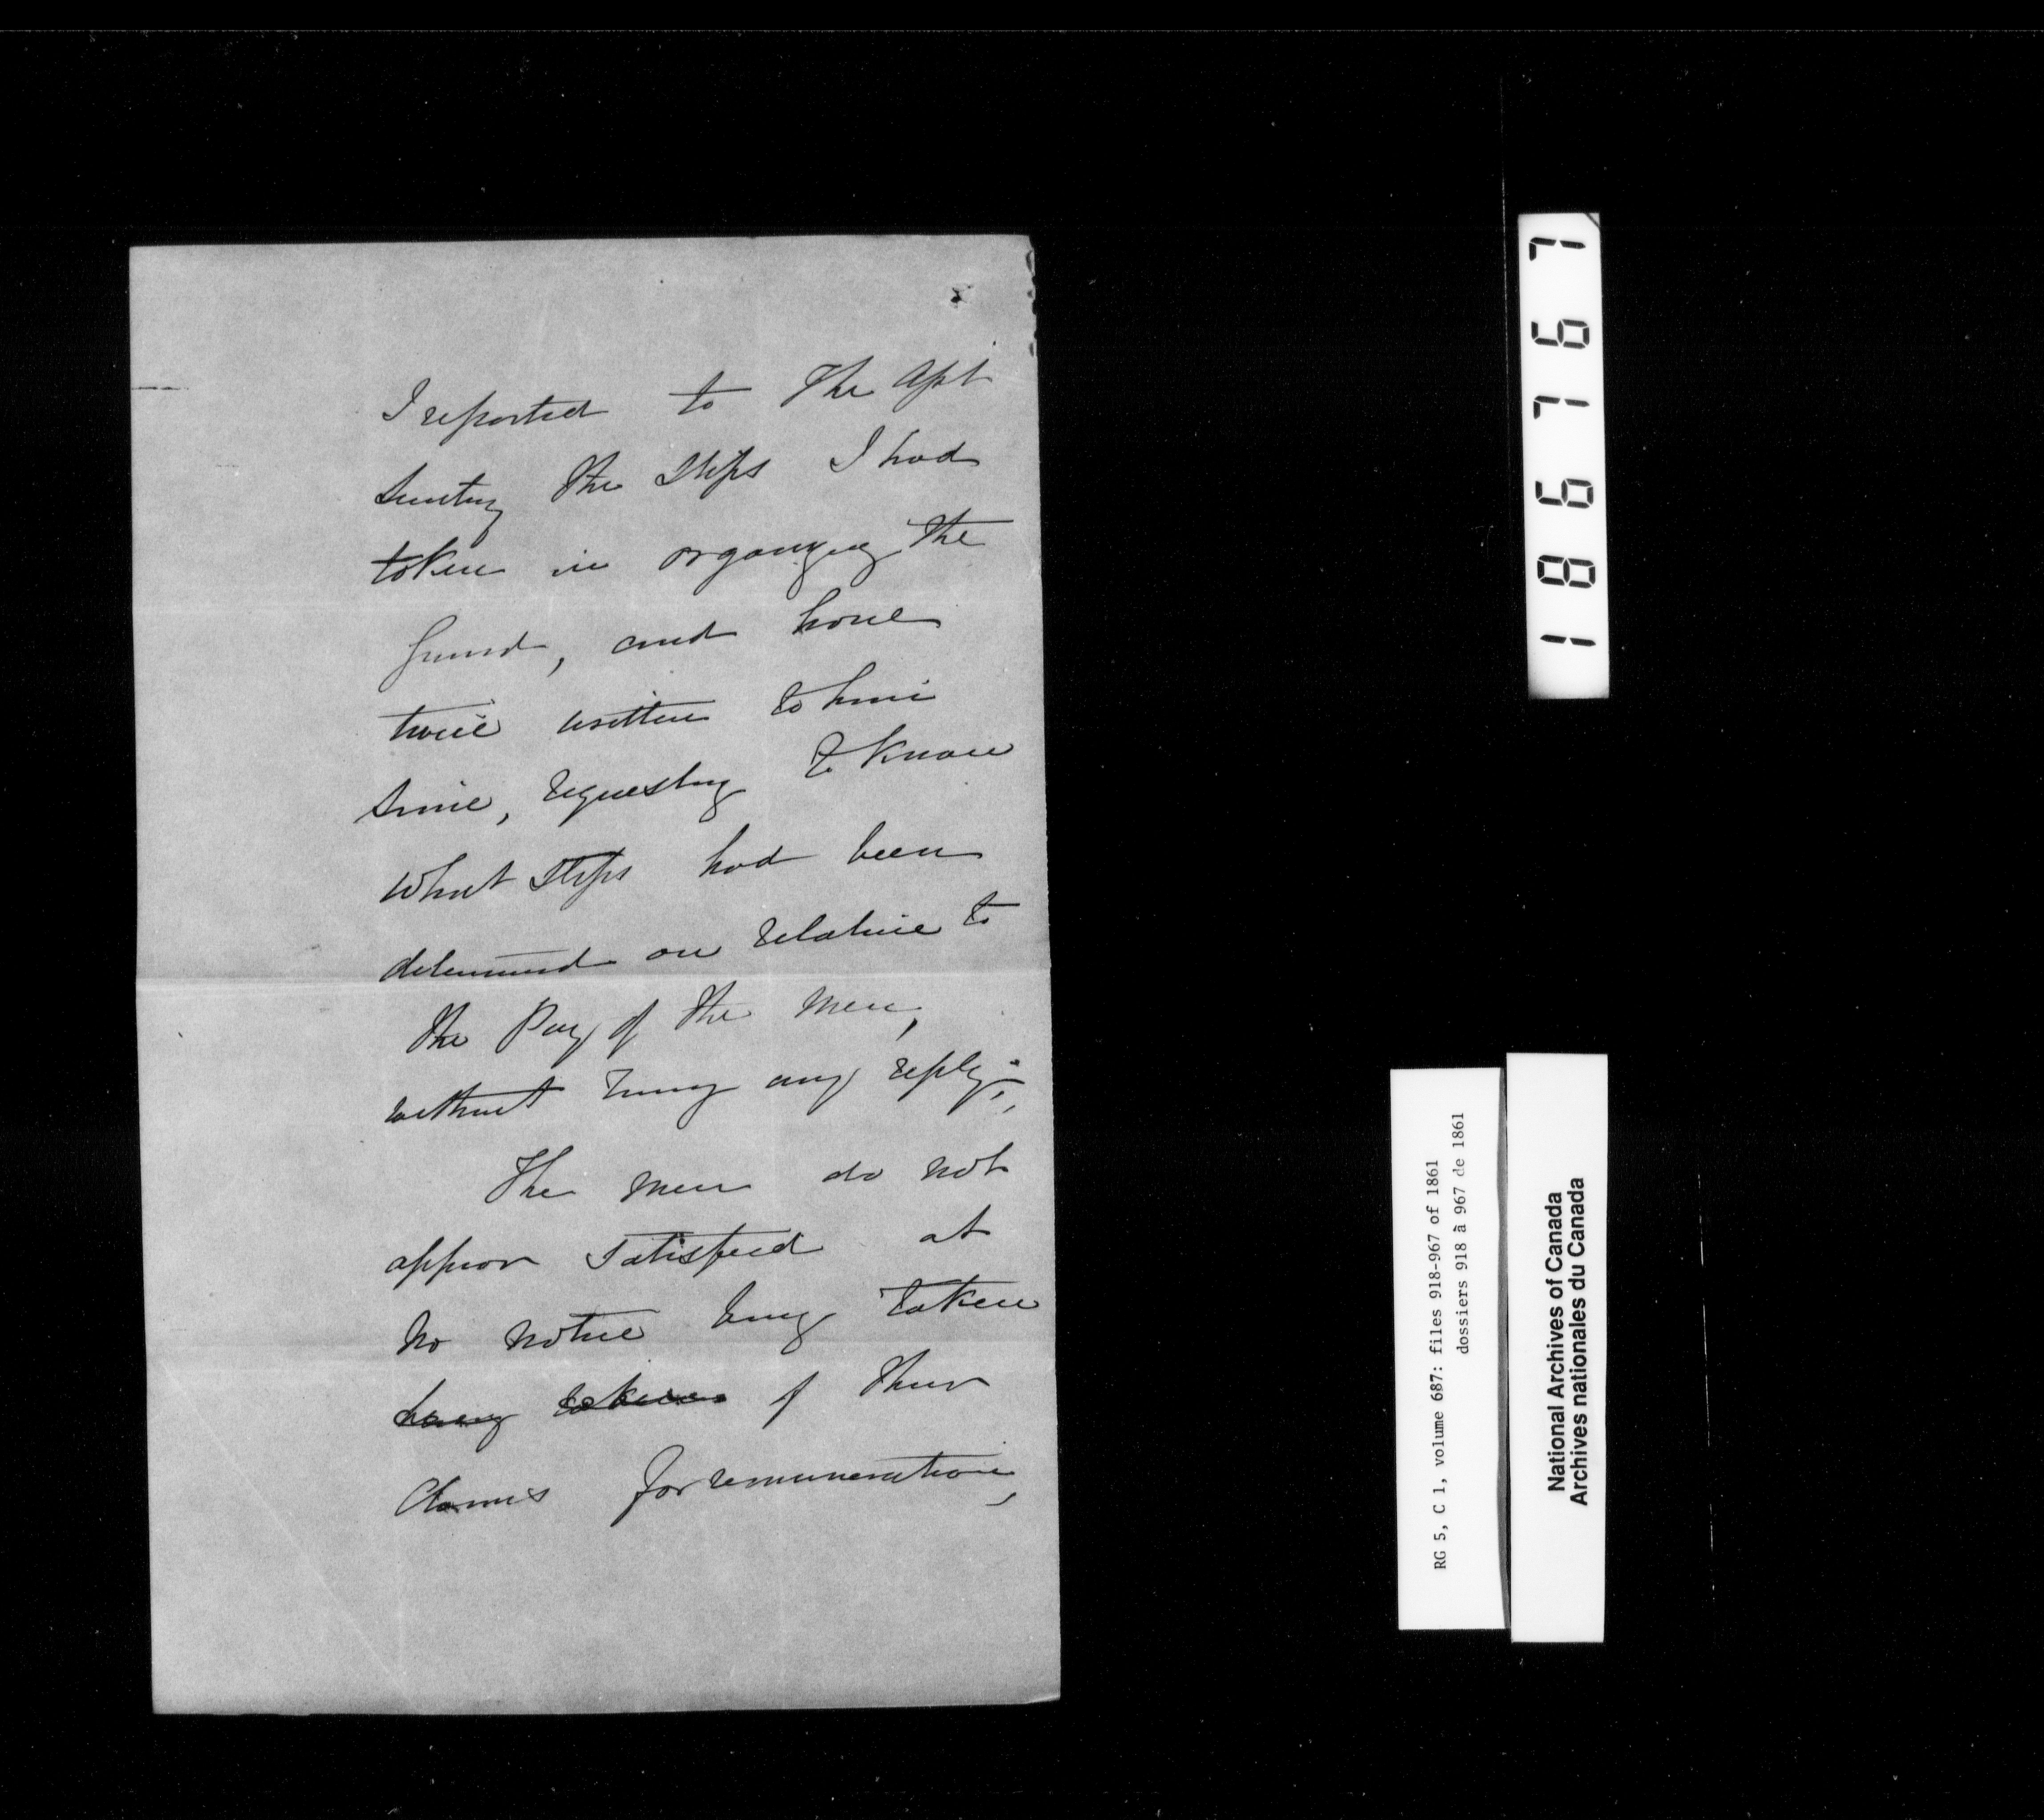 I reported to the Asst
Secretary the steps I had
taken in organizing the
Guard, and have
twice written to him
since, requesting to know
what steps had been
determined on relative to
the Pay of the men,
without any reply;
The men do not
appear satisfied at
no notice being taken
being taken of their
Claims for remuneration,
1867677
RG 5, C 1, volume 687: files 918-967 of 1861
dossiers 918 à 967 de 1861
National Archives of Canada
Archives nationales du Canada